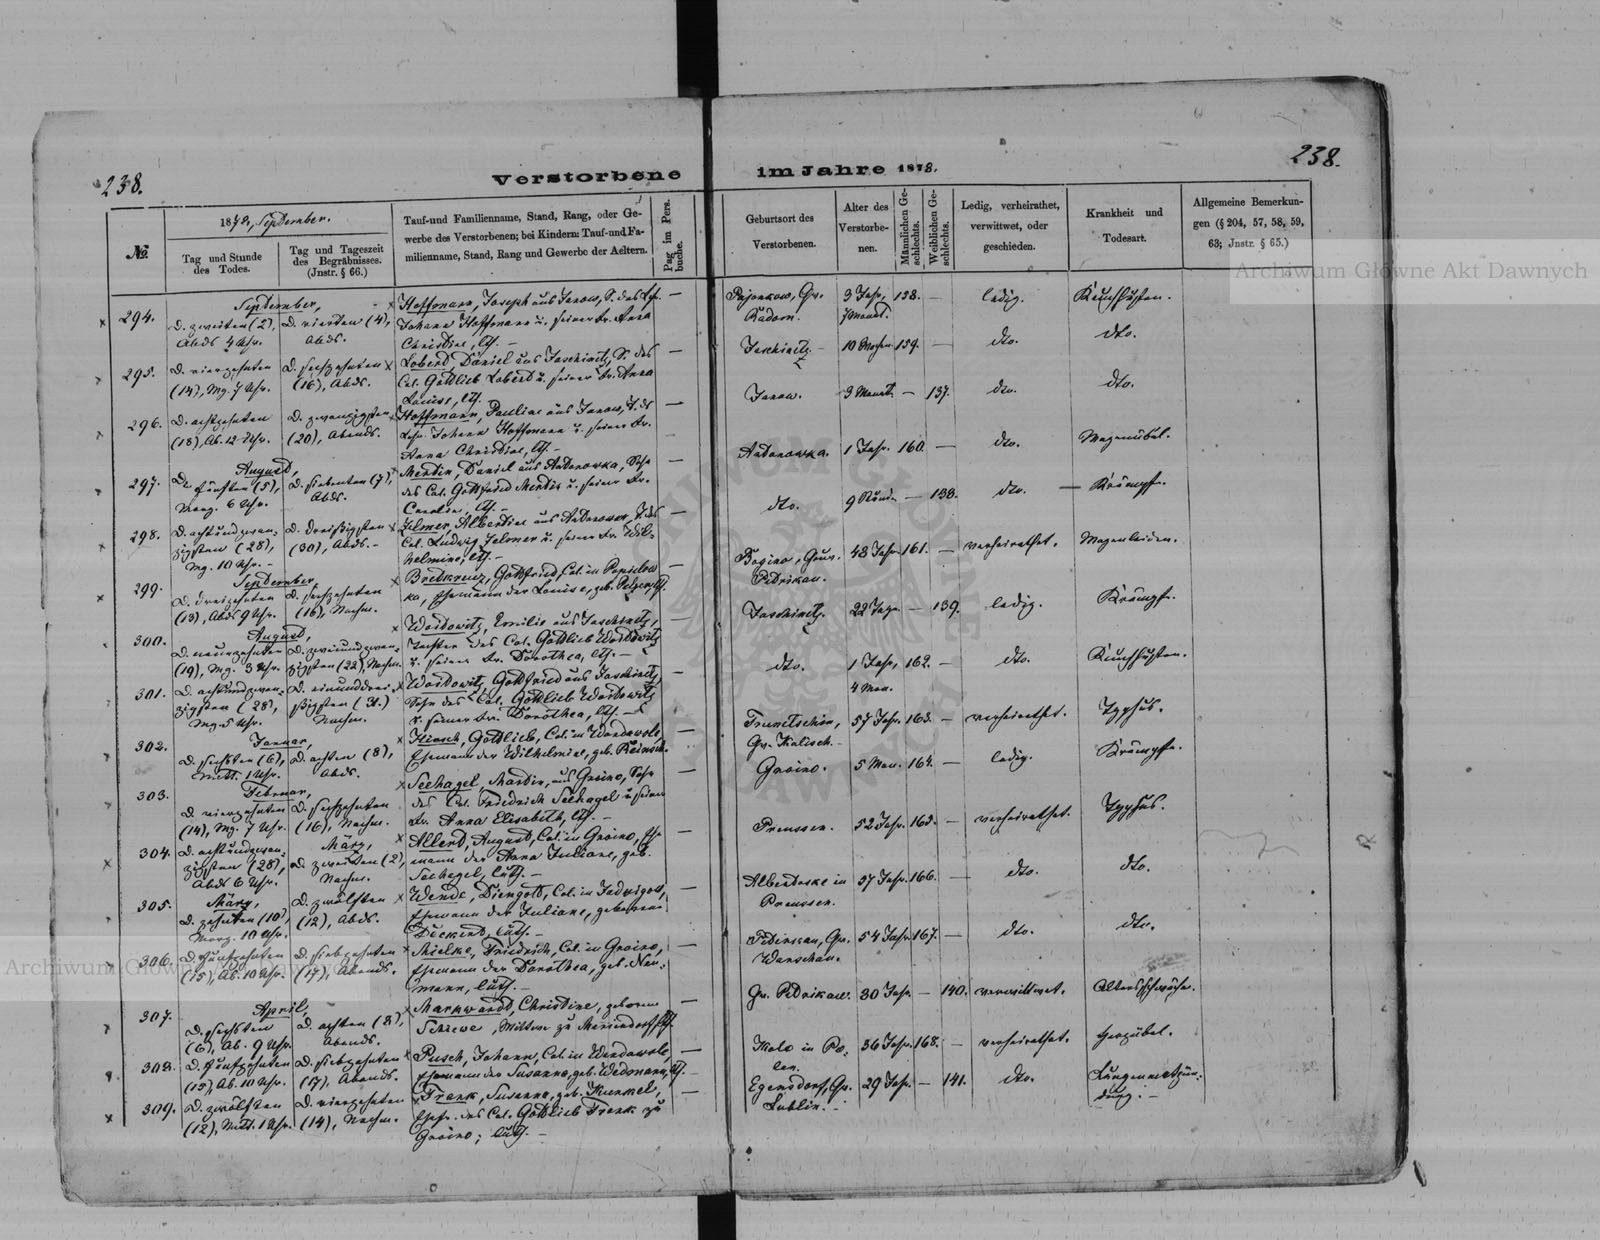 238.
Verstorbene
im Jahre 1878.
238.
No.
1878, September.
Tag und Stunde
des Todes.
Tag und Tageszeit
des Begräbnisses.
(Jnstr. § 66.)
Tauf-und Familienname, Stand, Rang, oder Ge-
werbe des Verstorbenen; bei Kindern: Tauf-und Fa-
milienname, Stand, Rang und Gewerbe der Aeltern.
Pag im Pers.
buche.
Geburtsort des
Verstorbenen.
Alter des
Verstorbe-
nen.
Männlichen Ge-
schlechts.
Weiblichen Ge-
schlechts.
Ledig, verheirathet,
verwittwet, oder
geschieden.
Krankheit und
Todesart.
Allgemeine Bemerkun-
gen (§ 204, 57, 58, 59,
63; Jnstr. § 65.)
294.
September,
D. zweiten (2),
Abds 4 Uhr.
D. vierten (4),
Abds.
Hoffmann, Joseph aus Janow, S. des
Johann Hoffmann u. seiner Fr. Anna
Christine, luth. –
Gv.
Radom.
3 Jahr,
7 Monat.
158. –
ledig.
Keuchhusten.
295.
D. vierzehnten
(14), Mg. 7 Uhr.
D. sechzehnten
(16), Abds.
Daniel aus Jaschinitz, S. des
Col. Gottlieb u. seiner Fr. Anna
Louise, luth.
Jaschinitz.
10 Wochen
159. –
dto.
dto.
296.
D. achtzehnten
(18), Ab. 12 Uhr.
D. zwanzigsten
(20), Abends.
Hoffmann, Pauline aus Janow, T. des
Johann Hoffmann u. seiner Fr.
Anna Christine, luth. –
Janow.
3 Monat
– 137.
dto.
dto.
297.
August,
D. fünften (5),
Morg. 6 Uhr.
D. siebenten (7),
Abds.
Daniel aus Antonowka, Sohn
des Col. Gottfried u. seiner Fr.
Caroline, luth. –
Antonowka.
1 Jahr
160. –
dto.
Magenübel.
298.
D. achtundzwan-
zigsten (28),
Mg. 10 Uhr. –
D. dreißigsten
(30), Abds. –
Albertine aus T. des
Col. Ludwig u. seiner Fr. Wil-
helmine, luth. –
dto.
9
– 138.
dto.
Krämpfe.
299.
September,
D. dreizehnten
(13), Abds 9 Uhr.
D. sechzehnten
(16), Nachm.
Gottfried, Col. in
ka, Ehemann der Louise, geb.
Gouv.
Petrikau.
48 Jahr
161. –
verheirathet.
Magenleiden.
300.
August,
D. neunzehnten
(19), Mg. 3 Uhr.
D. zweiundzwan-
zigsten (22), Nachm.
Woitowitz, Emilie aus Jaschinitz,
Tochter des Col. Gottlieb Woitowitz
u. seiner Fr. Dorothea, luth. –
Jaschinitz.
22 Tage
– 139.
ledig.
Krämpfe.
301.
D. achtundzwan-
zigsten (28),
Mg. 5 Uhr.
D. einunddrei-
ßigsten (31.)
Nachm.
Woitowitz, Gottfried aus Jaschinitz,
Sohn des Col. Gottlieb Woitowitz
u. seiner Fr. Dorothea, luth. –
dto.
1 Jahr,
4 Mon.
162. –
dto.
Keuchhusten.
302.
Januar,
D. sechsten (6),
Mitt. 1 Uhr.
D. achten (8),
Abds.
Hirsch, Gottlieb, Col. in
Ehemann der Wilhelmine, geb.
Gv. Kalisch. –
57 Jahr
163. –
verheirathet.
Typhus.
303.
Februar,
D. vierzehnten
(14), Mg. 7 Uhr.
D. sechzehnten
(16), Nachm.
Seehagel, Martin, aus Grojno, Sohn
des Col. Friedrich Seehagel u. seiner
Fr. Anna Elisabeth, luth. –
Grojno.
5 Mon.
164. –
ledig.
Krämpfe.
304.
D. achtundzwan-
zigsten (28),
Abds 6 Uhr.
März,
D. zweiten (2),
Nachm.
Allert, August, Col. in Grojno, Ehe-
mann der Anna Juliane, geb.
Seehagel, luth. –
Preussen.
52 Jahr
165. –
verheirathet.
Typhus.
305.
März,
D. zehnten (10),
Morg. 10 Uhr.
D. zwölften
(12), Abds.
Wende, Col. in
Ehemann der Juliane, geborene
luth. –
in
Preussen.
37 Jahr
166. –
dto.
dto.
306.
D. fünfzehnten
(15), Ab. 10 Uhr.
D. siebzehnten
(17), Abends.
Mielke, Friedrich, Col. in Grojno,
Ehemann der Dorothea, geb. Neu-
mann, luth. –
Gv.
Warschau.
54 Jahr
167. –
dto.
dto.
307.
April,
D. sechsten
(6), Ab. 9 Uhr.
D. achten (8),
Abends.
Markwardt, Christine, geborne
Wittwe zu
Gv. Petrikau.
80 Jahr
– 140.
verwittwet.
Altersschwäche.
308.
D. fünfzehnten
(15), Ab. 10 Uhr.
D. siebzehnten
(17), Abends.
Pusch, Johann, Col. in
Ehemann der Susanna, geb. Wedmann, luth.
Kolo in Po-
len.
36 Jahr
168. –
verheirathet.
Herzübel.
309.
D. zwölften
(12), Mitt. 1 Uhr.
D. vierzehnten
(14), Nachm.
Frenk, Susanna, geb. Kunkel,
Ehefr. des Col. Gottlieb Frenk zu
Grojno; luth. –
Gv.
Lublin. –
29 Jahr
– 141.
dto.
Lungenentzün-
dung. –
Archiwum Główne Akt Dawnych
Archiwum Główne